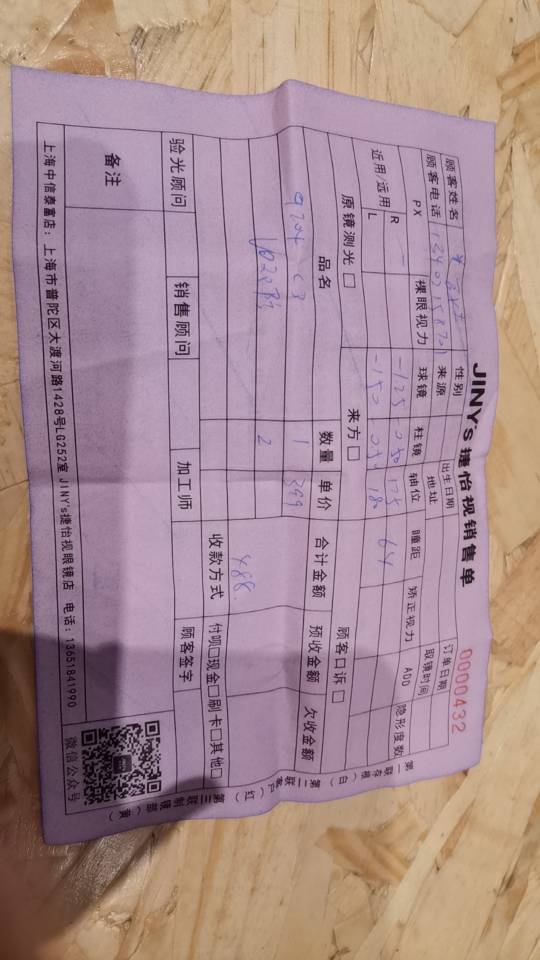 JINY's捷怡视销售单
0000432
顾客姓名 性别 出生日期 订单日期
顾客电话 来源 地址 取镜时间
PX 裸眼视力 球镜 柱镜 轴位 瞳距 矫正视力 ADD 隐形度数
近用/远用 R -125 050 175 64
L -150 050 180
原镜测光□ 来方□ 顾客口诉□
品名 数量 单价 合计金额 预收金额 欠收金额
C3 1 399
2
488.
收款方式 付呗□现金□刷卡□其他□
验光顾问 销售顾问 加工师 顾客签字
备注
微信公众号
上海中信泰富店：上海市普陀区大渡河路1428号LG252室 JINY's捷怡视眼镜店 电话：13651841990
第一联存根（白） 第二联客户（红） 第三联制镜部（黄）